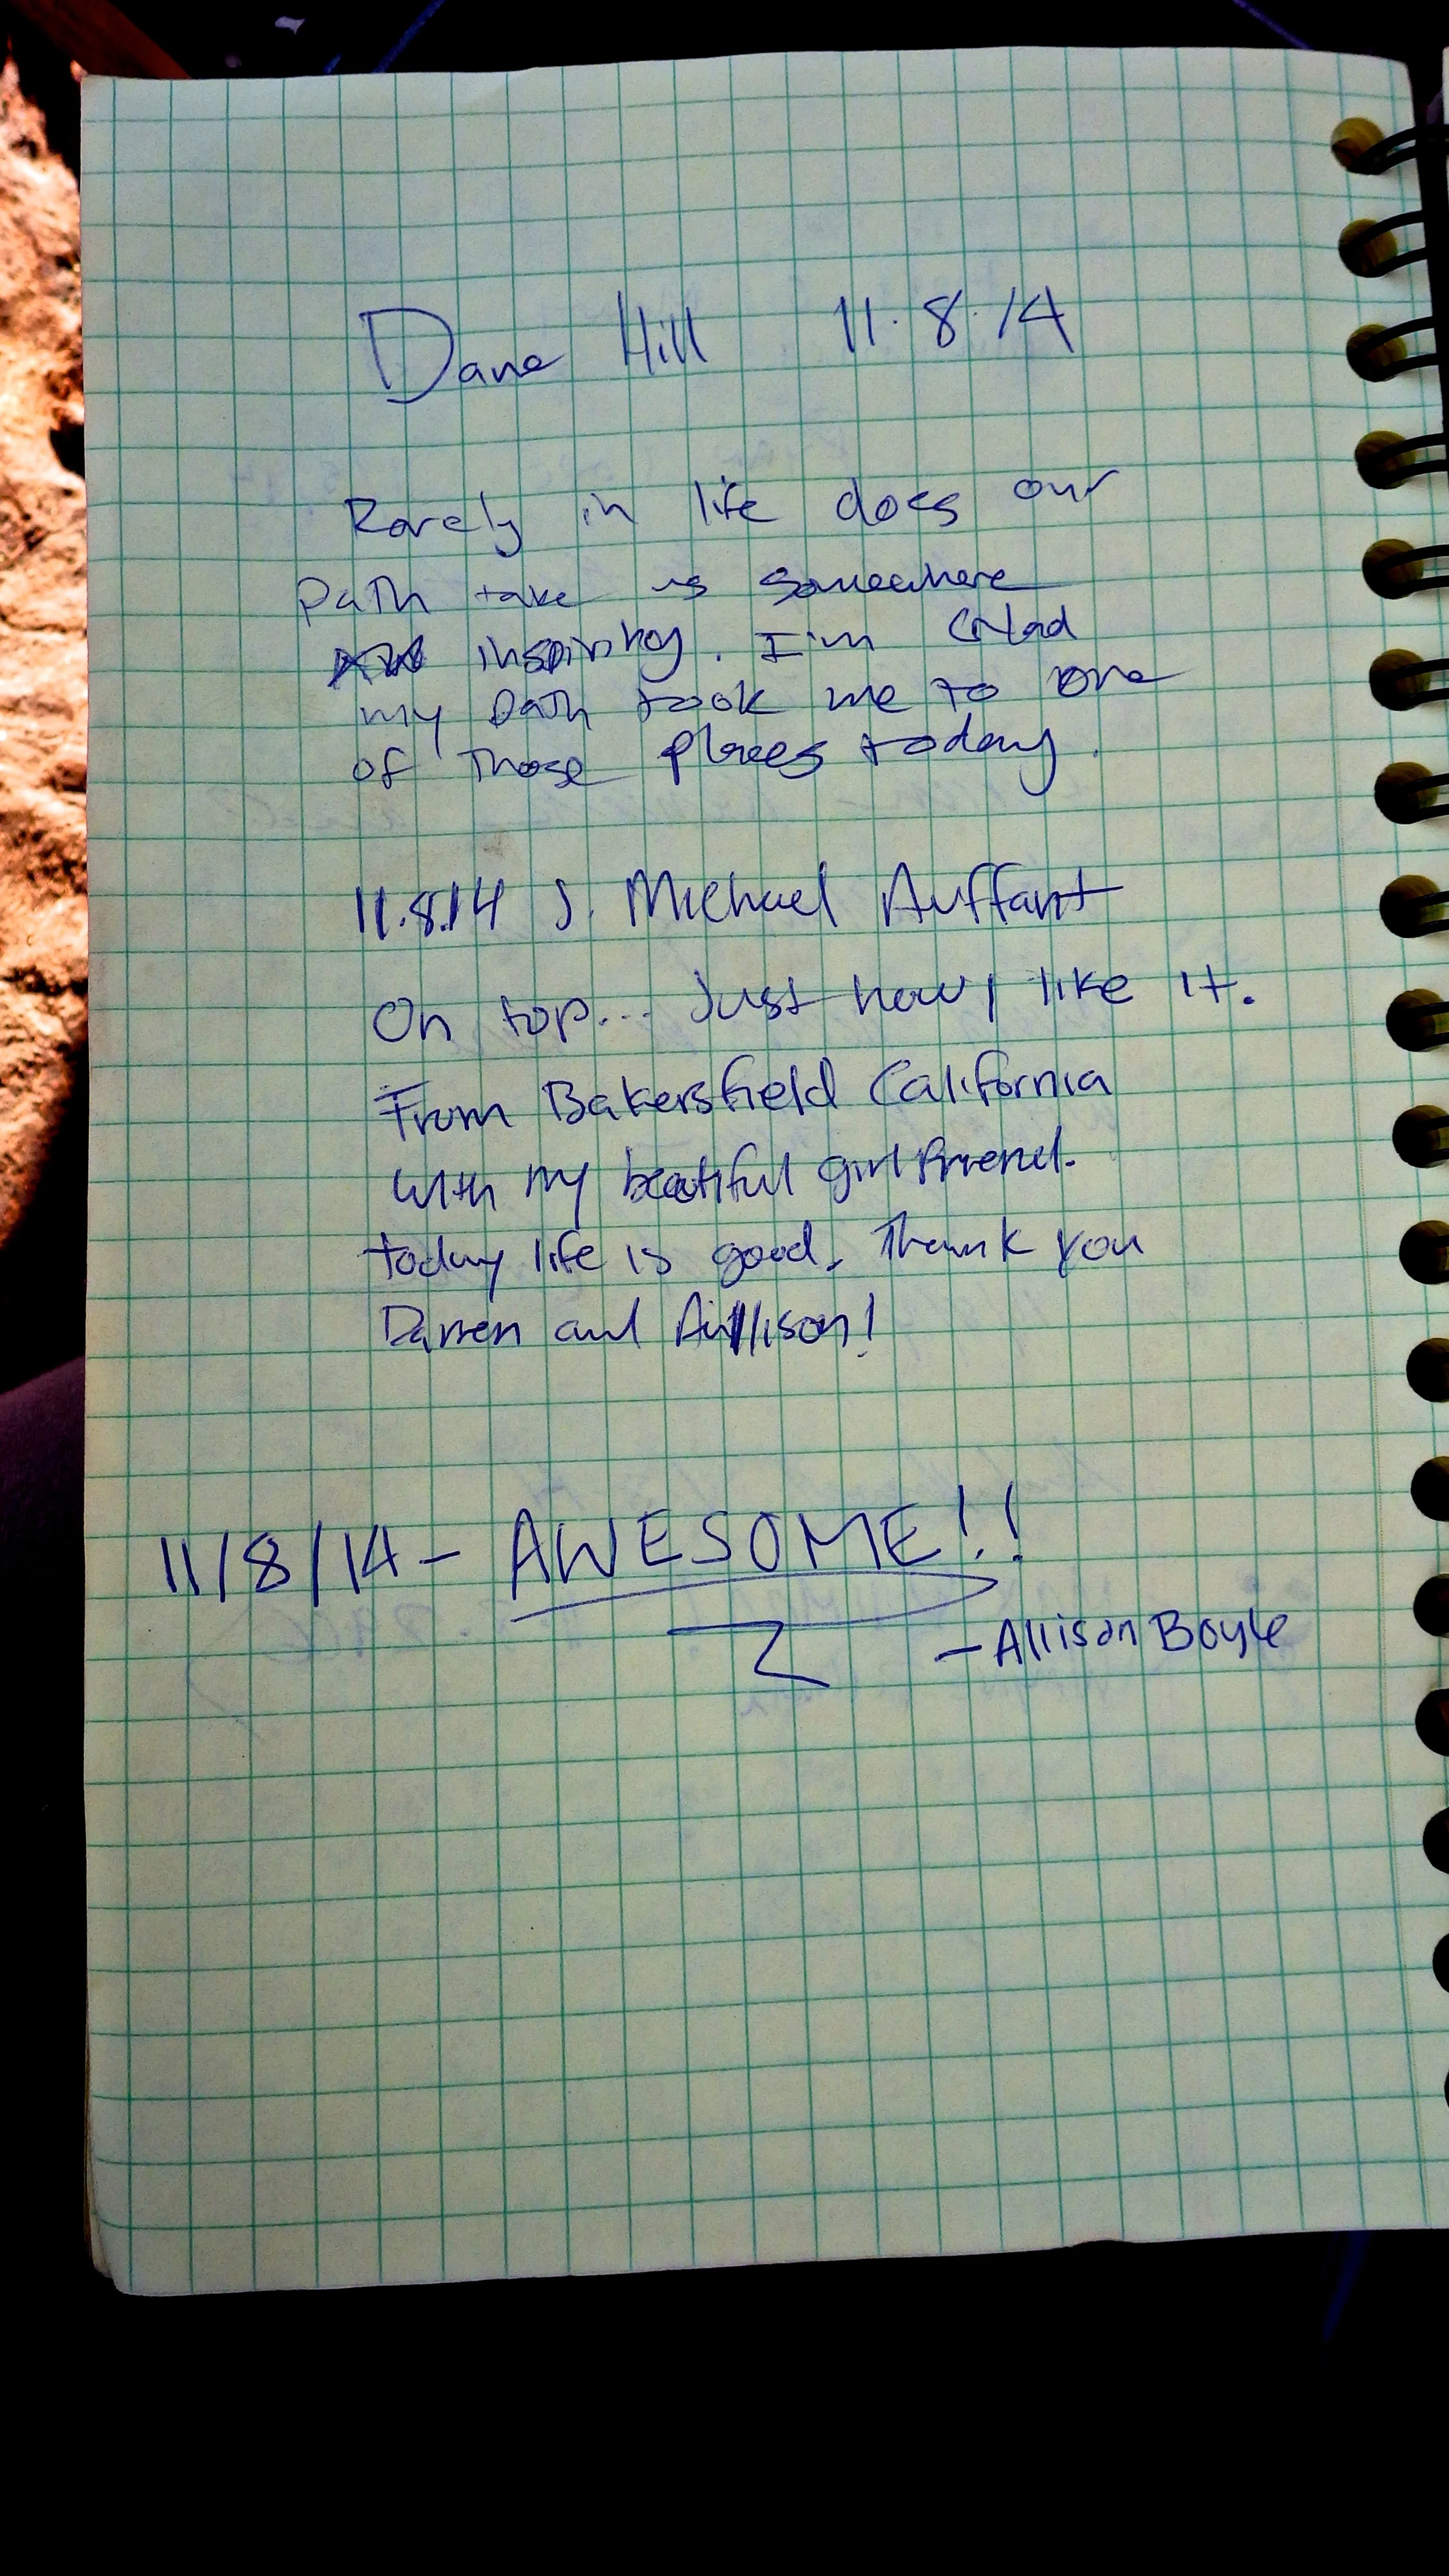 Dane Hill 11.8.14
Rarely in life does our
path take us somewhere
inspiring. I'm Glad
my path took me to one
of those places today.
11.8.14 J. Michael Auffant
On top... Just how I like it.
From Bakersfield California
with my beatiful girlfriend.
today life is good. Thank you
Darren and Allison!
11/8/14 - AWESOME!!
- Allison Boyle